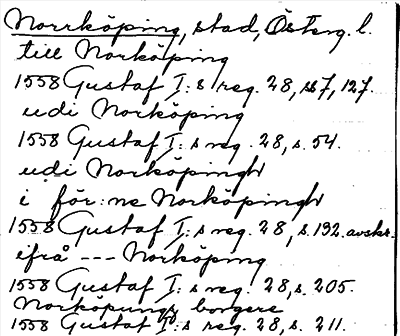 Norrköping, stad, Österg. l.
till Norköping
1558 Gustaf I:s reg. 28, s 7, 127.
udi Norköping
1558 Gustaf I:s reg. 28, s. 54.
udi Norköpingh
i för:ne Norköpingh
1558 Gustaf I:s reg. 28, s. 192. avskr.
ifrå --- Norköping
1558 Gustaf I:s reg. 28, s. 205.
Norköpungs borgere
1558 Gustaf I:s reg. 28, s. 211.